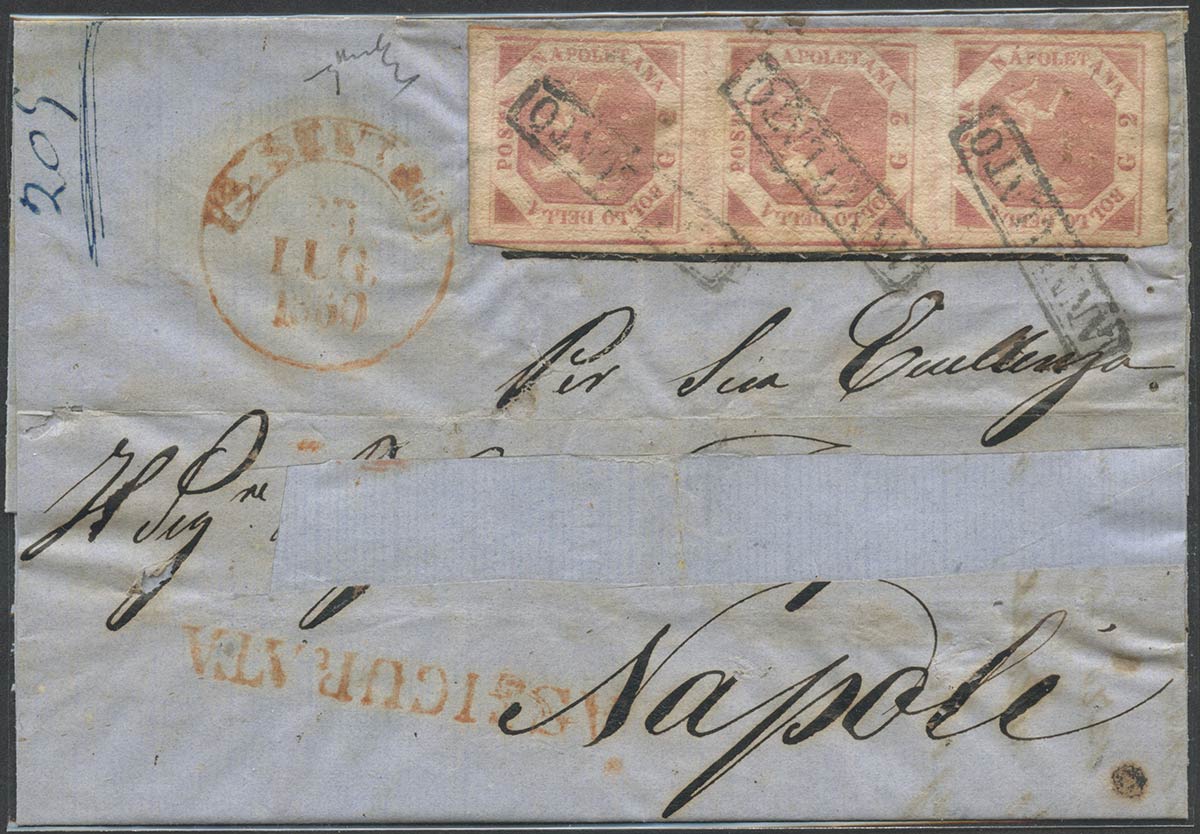 205
BOLLO DELLA POSTA NAPOLETANA G 2
BOLLO DELLA POSTA NAPOLETANA G 2
BOLLO DELLA POSTA NAPOLETANA G 2
ANNULLATO
ANNULLATO
ANNULLATO
LUG
Per Sua Eccellenza
Il Sigre
Napoli
ASSICURATA